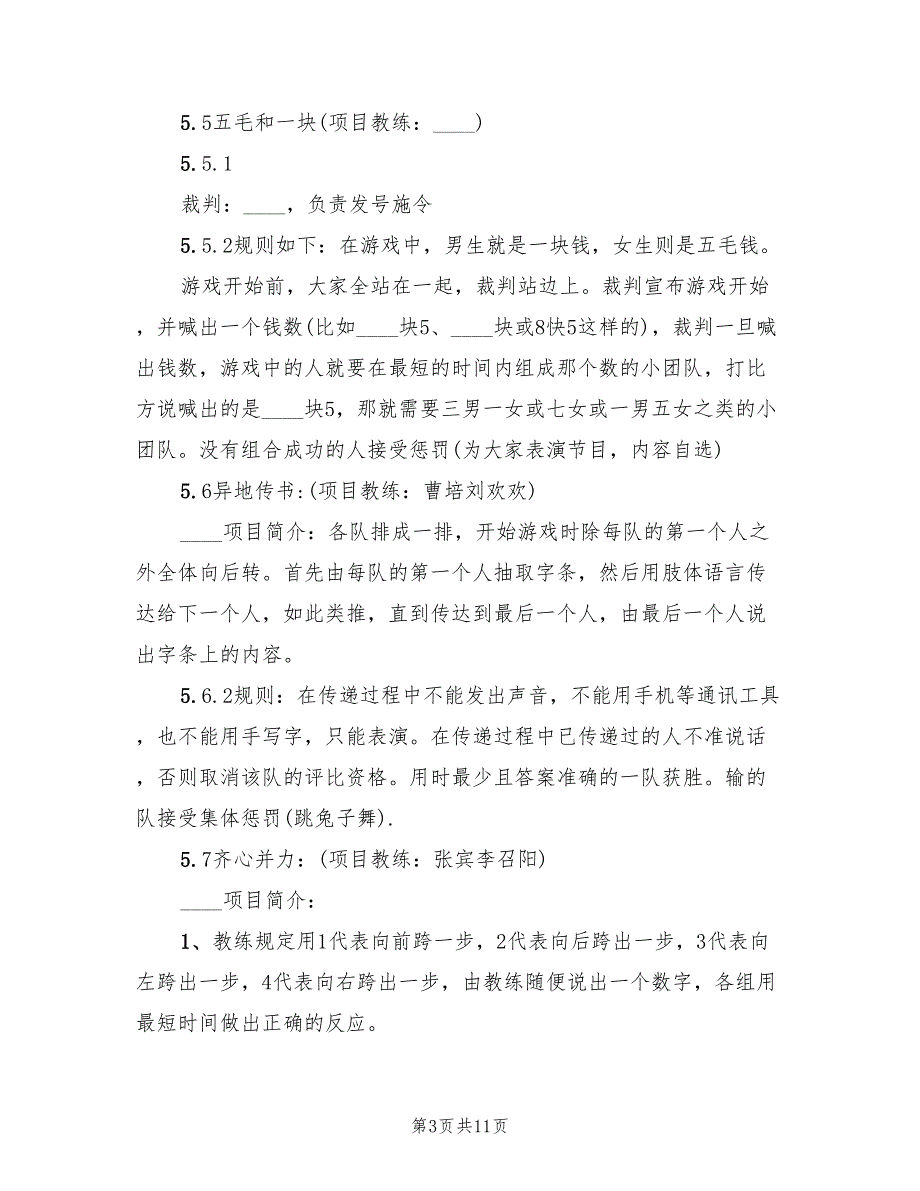 5.5五毛和一块(项目教练：____)
5.5.1
裁判：____，负责发号施令
5.5.2规则如下：在游戏中，男生就是一块钱，女生则是五毛钱。
游戏开始前，大家全站在一起，裁判站边上。裁判宣布游戏开始
，并喊出一个钱数(比如____块5、____块或8快5这样的)，裁判一旦喊
出钱数，游戏中的人就要在最短的时间内组成那个数的小团队，打比
方说喊出的是____块5，那就需要三男一女或七女或一男五女之类的小
团队。没有组合成功的人接受惩罚(为大家表演节目，内容自选)
5.6异地传书:(项目教练：曹培刘欢欢)
____项目简介：各队排成一排，开始游戏时除每队的第一个人之
外全体向后转。首先由每队的第一个人抽取字条，然后用肢体语言传
达给下一个人，如此类推，直到传达到最后一个人，由最后一个人说
出字条上的内容。
5.6.2规则：在传递过程中不能发出声音，不能用手机等通讯工具
，也不能用手写字，只能表演。在传递过程中已传递过的人不准说话
，否则取消该队的评比资格。用时最少且答案准确的一队获胜。输的
队接受集体惩罚(跳兔子舞).
5.7齐心并力：(项目教练：张宾李召阳)
____项目简介：
1、教练规定用1代表向前跨一步，2代表向后跨出一步，3代表向
左跨出一步，4代表向右跨出一步，由教练随便说出一个数字，各组用
最短时间做出正确的反应。
第3页共11页